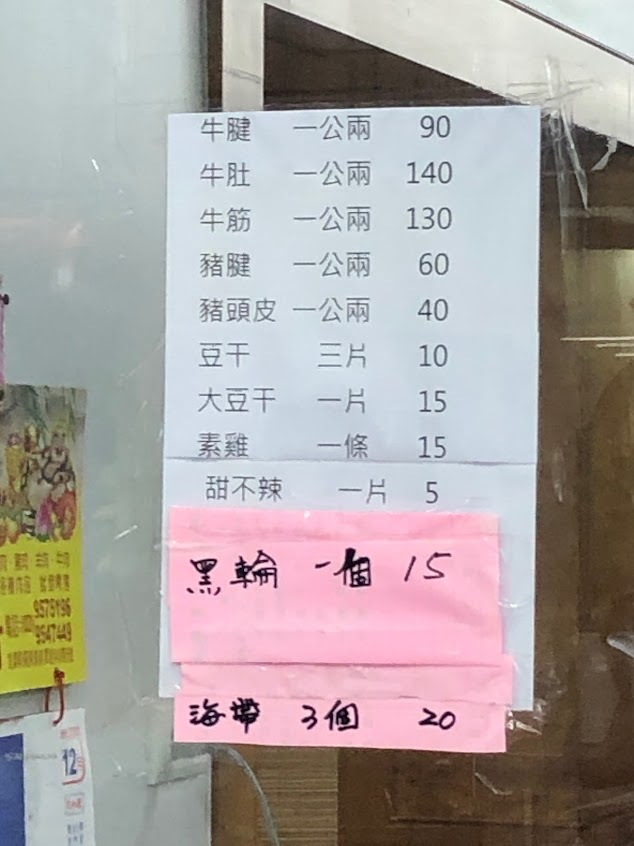 牛腱 一公兩 90
牛肚 一公兩 140
牛筋 一公兩 130
豬腱 一公兩 60
豬頭皮 一公兩 40
豆干 三片 10
大豆干 一片 15
素雞 一條 15
甜不辣 一片 5
黑輪 一個 15
海帶 3個 20
9575196
9547449
12